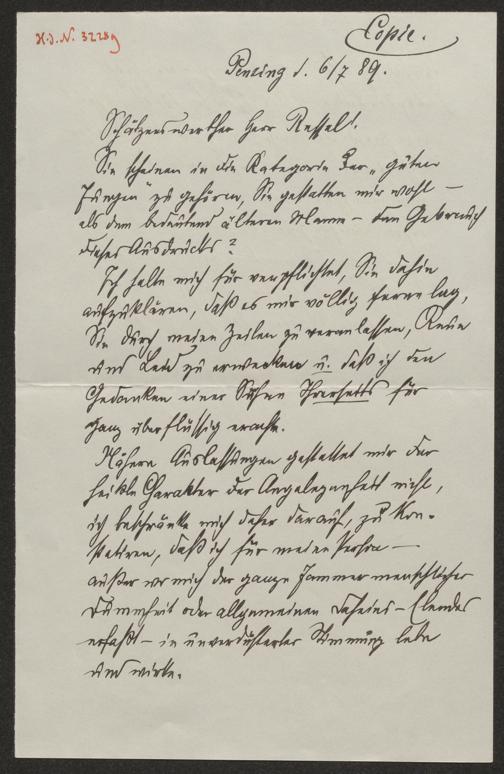 H.I.N. 32289
Copie.
Penzing d. 6/7 89.
Schätzenswerther Herr Ressel!
Sie scheinen in die Kategorie der „guten
Jungen“ zu gehören, Sie gestatten mir wohl –
als dem bedeutend älteren Manne – den Gebrauch
dieses Ausdrucks?
Ich halte mich für verpflichtet, Sie dahin
aufzuklären, daß es mir völlig ferne lag,
Sie durch meine Zeilen zu veranlassen, Reue
und Leid zu erwecken u. daß ich den
Gedanken einer Sühne Ihrerseits für
ganz überflüssig erachte.
Nähere Auslassungen gestattet mir der
heikle Charakter der Angelegenheit nicht,
ich beschränke mich daher darauf, zu kon-
statiren, daß ich für meine Person –
außer wo mich der ganze Jammer menschlicher
Dummheit oder allgemeinen Daseins-Elendes
erfaßt – in unverdüsterter Stimmung lebe
und wirke.